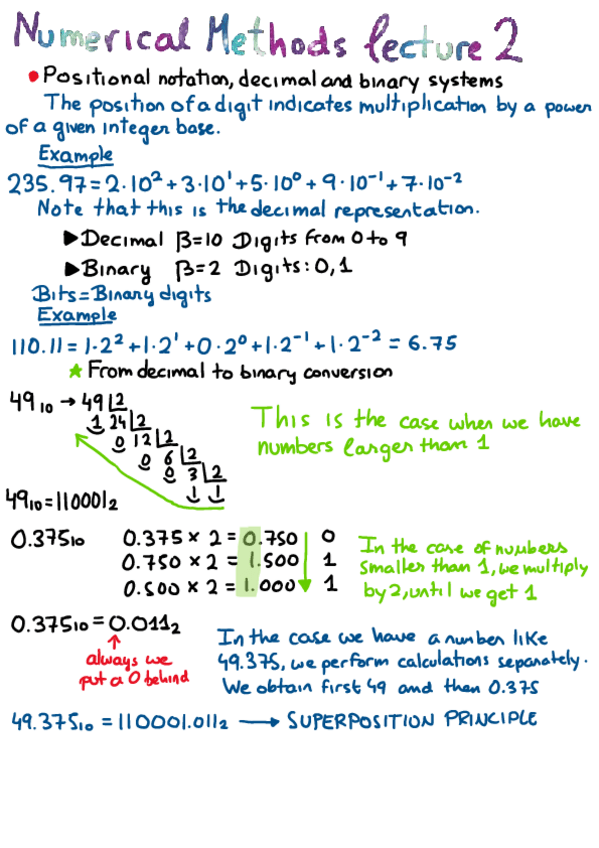 Numerical Methods lecture 2
• Positional notation, decimal and binary systems
The position of a digit indicates multiplication by a power
of a given integer base.
Example
235.97 = 2·10² + 3·10¹ + 5·10⁰ + 9·10⁻¹ + 7·10⁻²
Note that this is the decimal representation.
▶ Decimal β=10 Digits from 0 to 9
▶ Binary β=2 Digits: 0,1
Bits = Binary digits
Example
110.11 = 1·2² + 1·2¹ + 0·2⁰ + 1·2⁻¹ + 1·2⁻² = 6.75
★ From decimal to binary conversion
49₁₀ → 49 2
1 24 2
0 12 2
0 6 2
0 3 2
1 1
This is the case when we have
numbers larger than 1
49₁₀ = 110001₂
0.375₁₀
0.375 × 2 = 0.750 0
0.750 × 2 = 1.500 1
0.500 × 2 = 1.000 1
In the case of numbers
smaller than 1, we multiply
by 2, until we get 1
0.375₁₀ = 0.011₂
always we
put a 0 behind
In the case we have a number like
49.375, we perform calculations separately.
We obtain first 49 and then 0.375
49.375₁₀ = 110001.011₂ → SUPERPOSITION PRINCIPLE